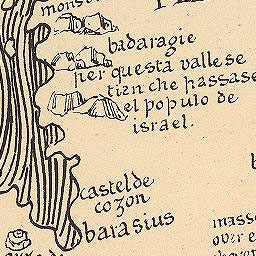 badaragie
per questa vallese
tien che passase
el populo de
israel.
castel de
cozon
barasius